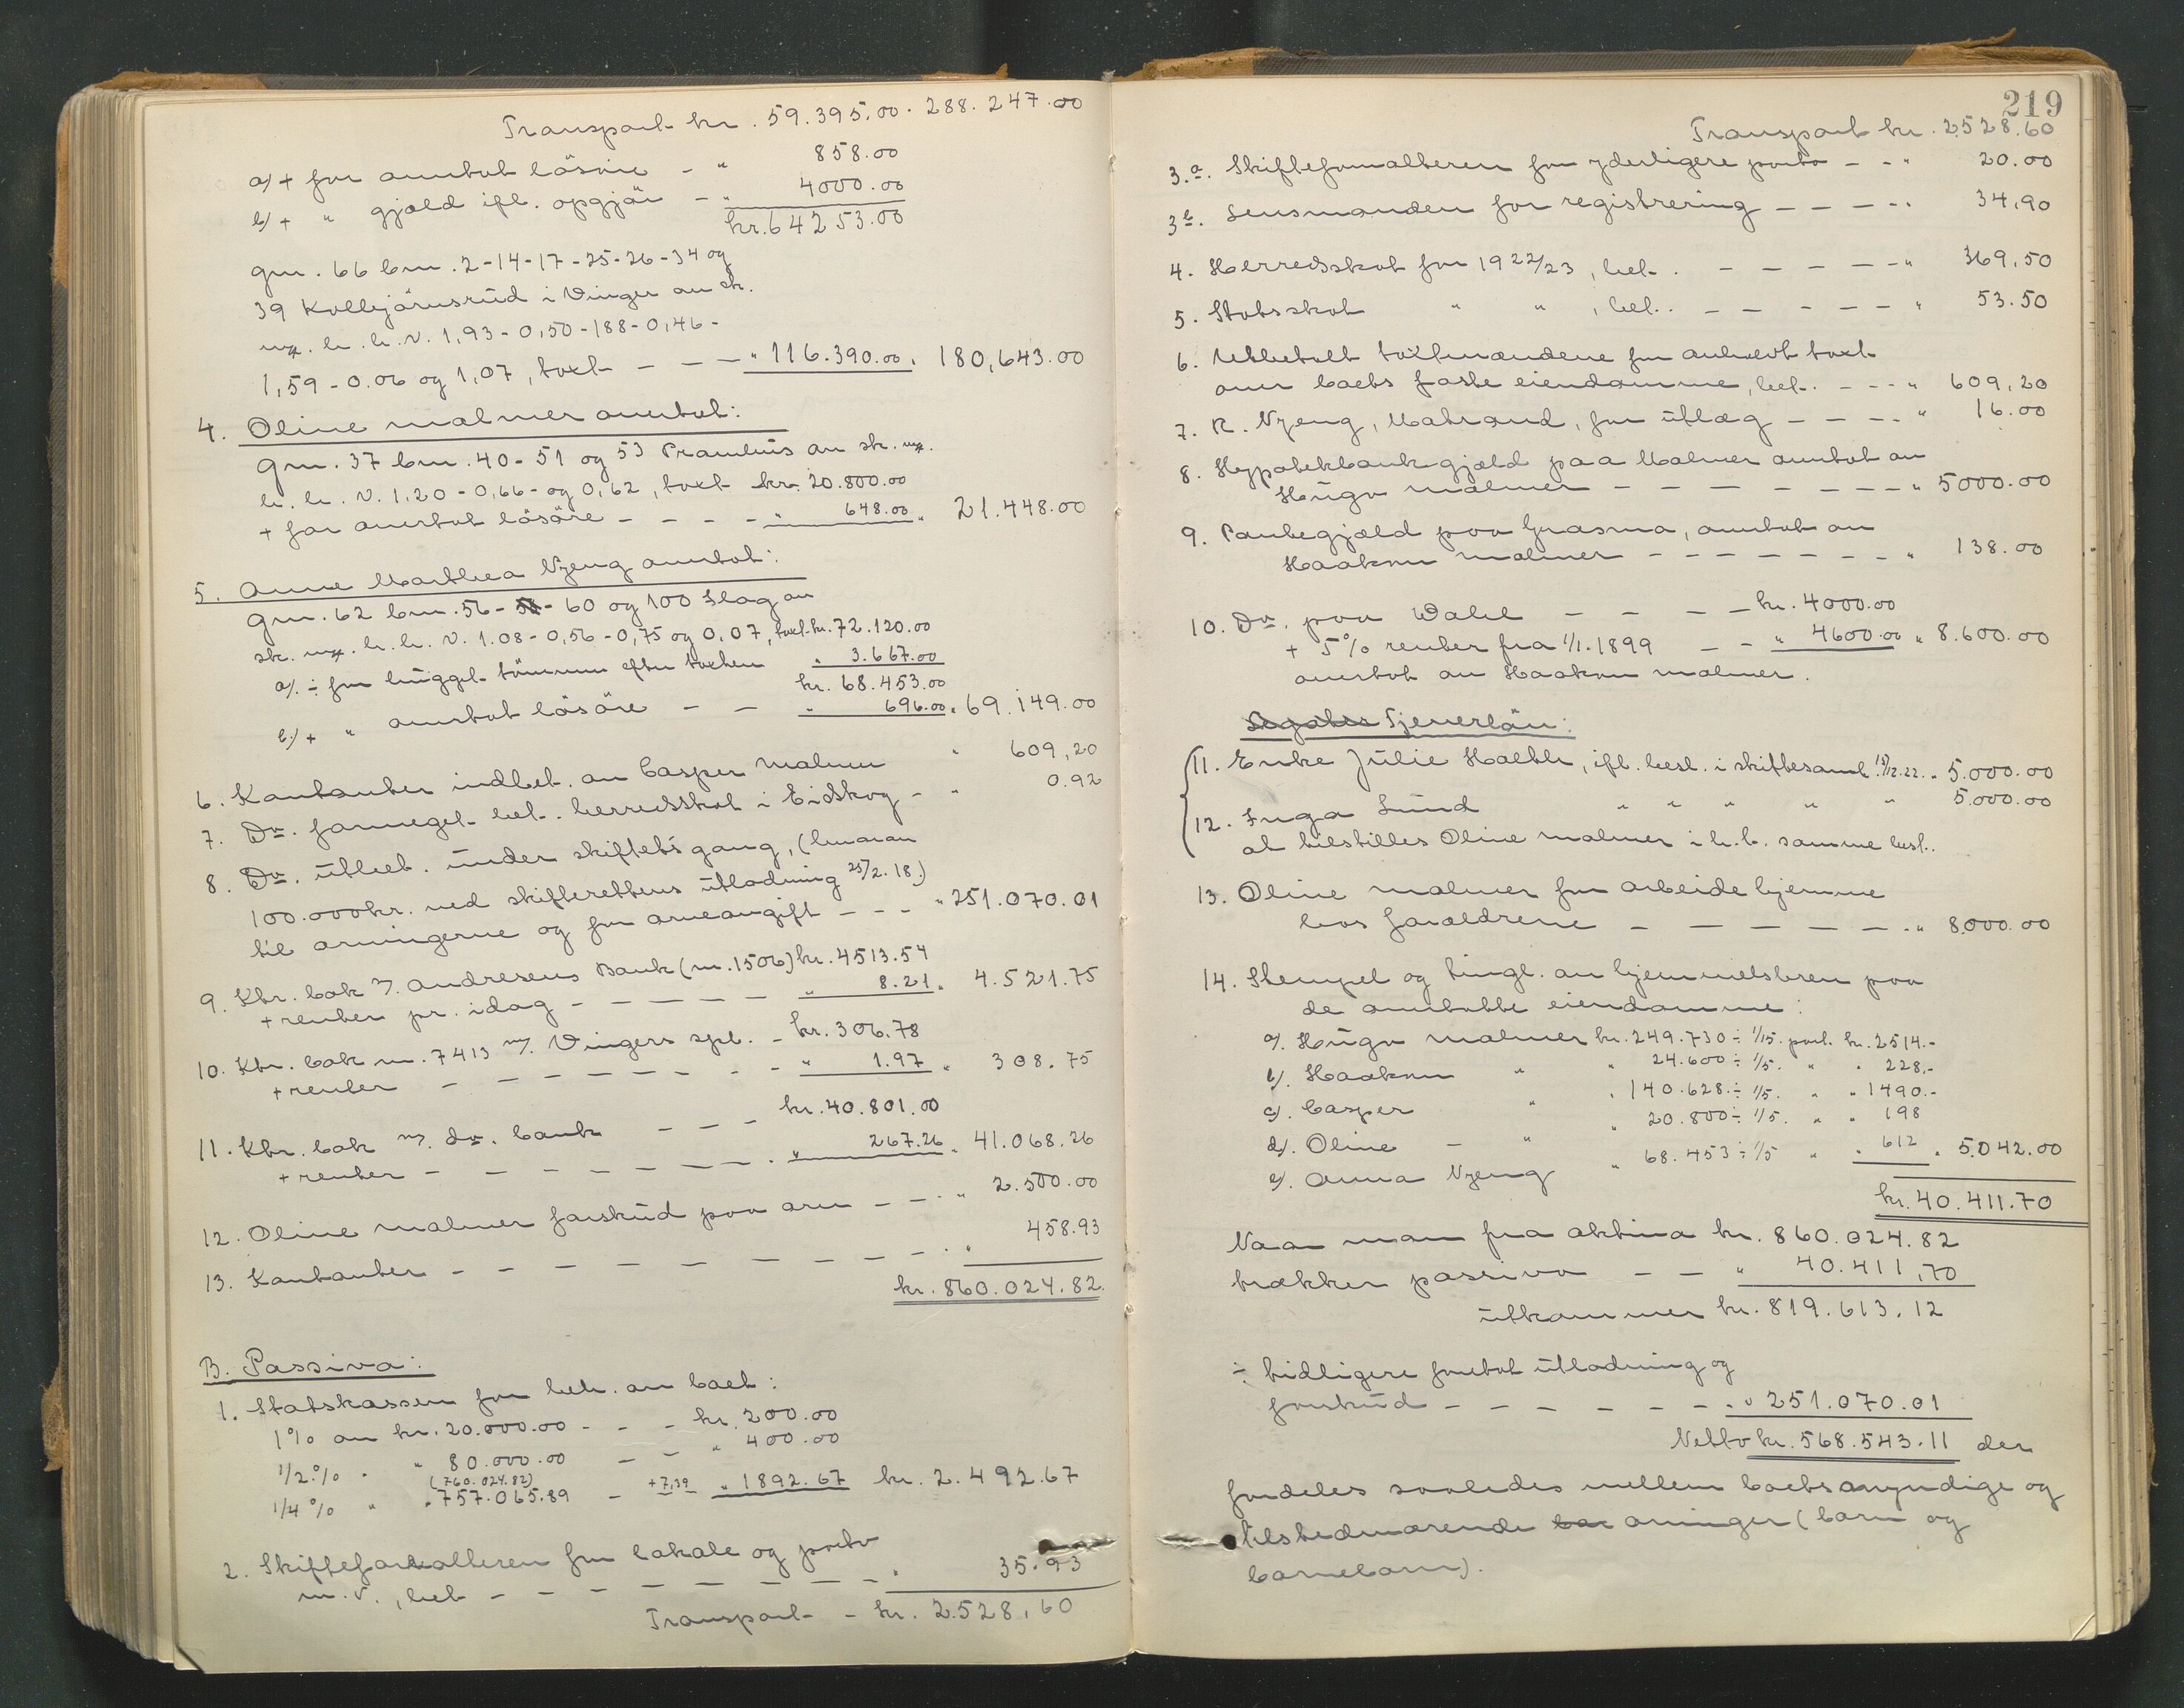 Transport kr. 59.395,00 . 288.247.00
a/ + for overtat lösöre - " 858.00
b/ + " gjæld ifl. opgjör - " 4000.00
kr. 64253.00
gm. 66 bm. 2-14-17-25-26-34 og
39 Kolbjörnsrud i Vinger av sk.
m. h. h. v. 1,93 - 0,50 - 188 - 0,46 -
1,59 - 0.06 og 1,07, takst - - - " 116.390.00 . 180,643.00
4. Oline Malmer overtat:
gm. 37 bm. 40-51 og 53 Pramhus av sk. m.
h. h. v. 1,20 - 0,66 - og 0,62, takst kr. 20.800.00
+ for overtat lösöre - - - - " 648.00 " 21.448.00
5. Anne Marthea Nyeng overtat:
gm. 62 bm. 56 - 58 - 60 og 100 Slag av
sk. m. h. h. v. 1.08 - 0,56 - 0,75 og 0,07, takst kr. 72.120.00
a/. ÷ for hugget tömmer efter taksten " 3.667.00
kr. 68.453.00
b/ + " overtat lösöre - - " 696.00 " 69.149.00
6. Kontanter indbet. av Casper Malmer " 609,20
7. Do. formeget bet. herredsskat i Eidskog - " 0.92
8. Do. utbet. under skiftets gang, (hvorav
100.000 kr. ved skifterettens utlodning 25/2. 18.)
til arvingerne og for arveavgift - - - " 251.070.01
9. Ktr. bok m/. Andresens Bank (nr. 1506) kr. 4513.54
+ renter pr. idag - - - - - " 8.21 " 4.521.75
10. Ktr. bok nr. 7413 m/. Vingers spb. - kr. 306.78
+ renter - - - - - - - - " 1.97 " 308.75
11. Ktr. bok m/. do. bank - - - kr. 40.801.00
+ renter - - - - - - - - . " 267.26 " 41.068.26
12. Oline Malmer forskud paa arv - - . " 2.500.00
13. Kontanter - - - - - - - - - . " 458.93
kr. 860.024.82.
B. Passiva:
1. Statskassen for beh. av boet:
1% av kr. 20.000.00 - - - kr. 200.00
1/2% " " 80.000.00 - - " 400.00
(760.024.82)
1/4% " " 757.065.89 - +7,39 " 1892.67 kr. 2.492.67
2. Skifteforvalteren for lokale og porto
m. v., bet - - - - - - - - " 35.93
Transport - kr. 2.528,60
219
Transport kr. 2.528.60
3.a. Skifteforvalteren for yderligere porto - - " 20.00
3b. Lensmanden for registrering - - - - " 34,90
4. Herredsskat for 1922/23, bet. - - - - - " 369,50
5. Statsskat " " , bet. - - - - - " 53.50
6. Utbetalt takstmændene for avholdt takst
over boets faste eiendomme, bet. - - - " 609,20
7. R. Nyeng, Matrand, for utlæg - - - - " 16.00
8. Hypotekbankgjæld paa Malmer overtat av
Hugo Malmer - - - - - - - - " 5000.00
9. Pantegjæld paa Grasmo, overtat av
Haakon Malmer - - - - - - - - " 138.00
10. Do. paa Wahl - - - - kr. 4000.00
+ 5% renter fra 1/1. 1899 - - " 4600.00 " 8.600.00
overtat av Haakon Malmer.
Legater Tjenerlön:
11. Enke Julie Holth, ifl. besl. i skiftesaml. 13/12.22. " 5.000.00
12. Inga Lund " " " " " 5.000.00
at tilstilles Oline Malmer i h. t. samme besl..
13. Oline Malmer for arbeide hjemme
hos forældrene - - - - - - " 8.000.00
14. Stempel og tingl. av hjemmelsbrev paa
de overtatte eiendomme:
a/. Hugo Malmer kr. 249.730 ÷ 1/15. part. kr. 2514.-
b/. Haakon " " 24.600 ÷ 1/5. " " 228.-
c/. Casper " " 140.628. ÷ 1/5. " " 1490.-
d/. Oline - " " 20.800 ÷ 1/5. " " 198
e/. Anna Nyeng " 68.453 ÷ 1/5 " " 612 " 5.042.00
kr. 40.411.70
Naar man fra aktiva kr. 860.024.82
trækker passiva - - " 40.411,70
utkommer kr. 819.613.12
÷ tidligere foretat utlodning og
forskud - - - - - - - " 251.070.01
Netto kr. 568.543.11 der
fordeles saaledes mellem boets myndige og
tilstedeværende arvinger (barn og
barnebarn).